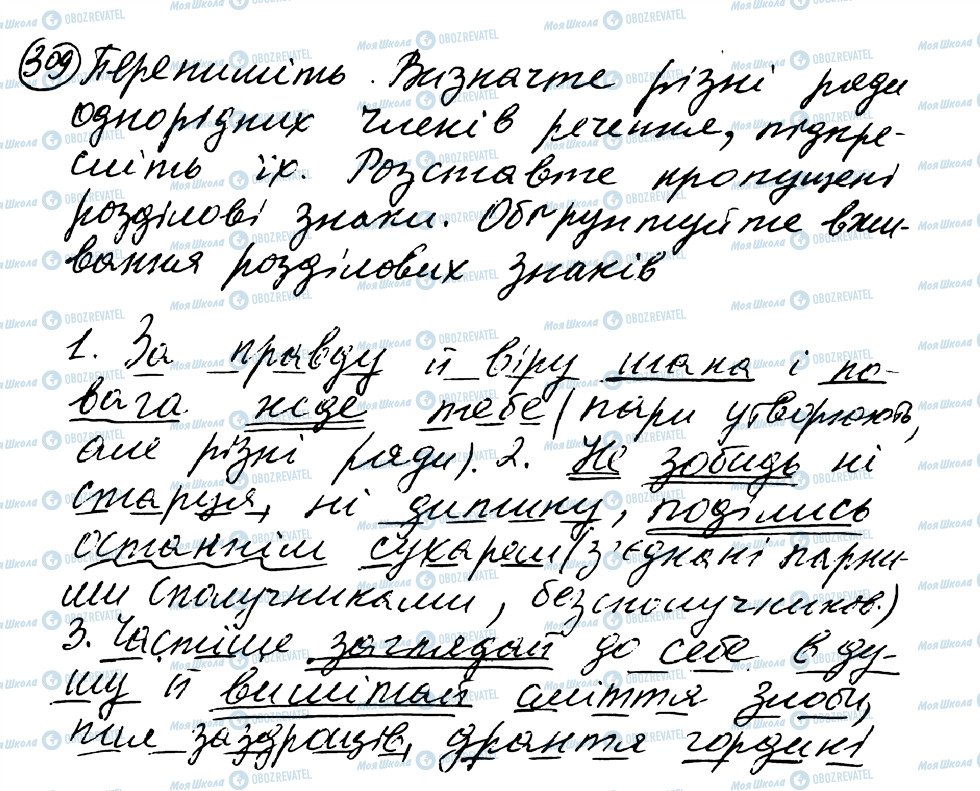 309 Перепишіть. Визначте різні ряди
однорідних членів речення, підкре-
сліть їх. Розставте пропущені
розділові знаки. Обґрунтуйте вжи-
вання розділових знаків
1. За правду й віру шана і по-
вага жде тебе (пари утворюють,
але різні ряди). 2. Не зобидь ні
старця, ні дитину, поділись
останнім сухарем (з'єднані парни-
ми сполучниками, безсполучников.)
3. Частіше заглядай до себе в ду-
шу й вимітай сміття злоби,
пил заздрощів, дрантя гордині